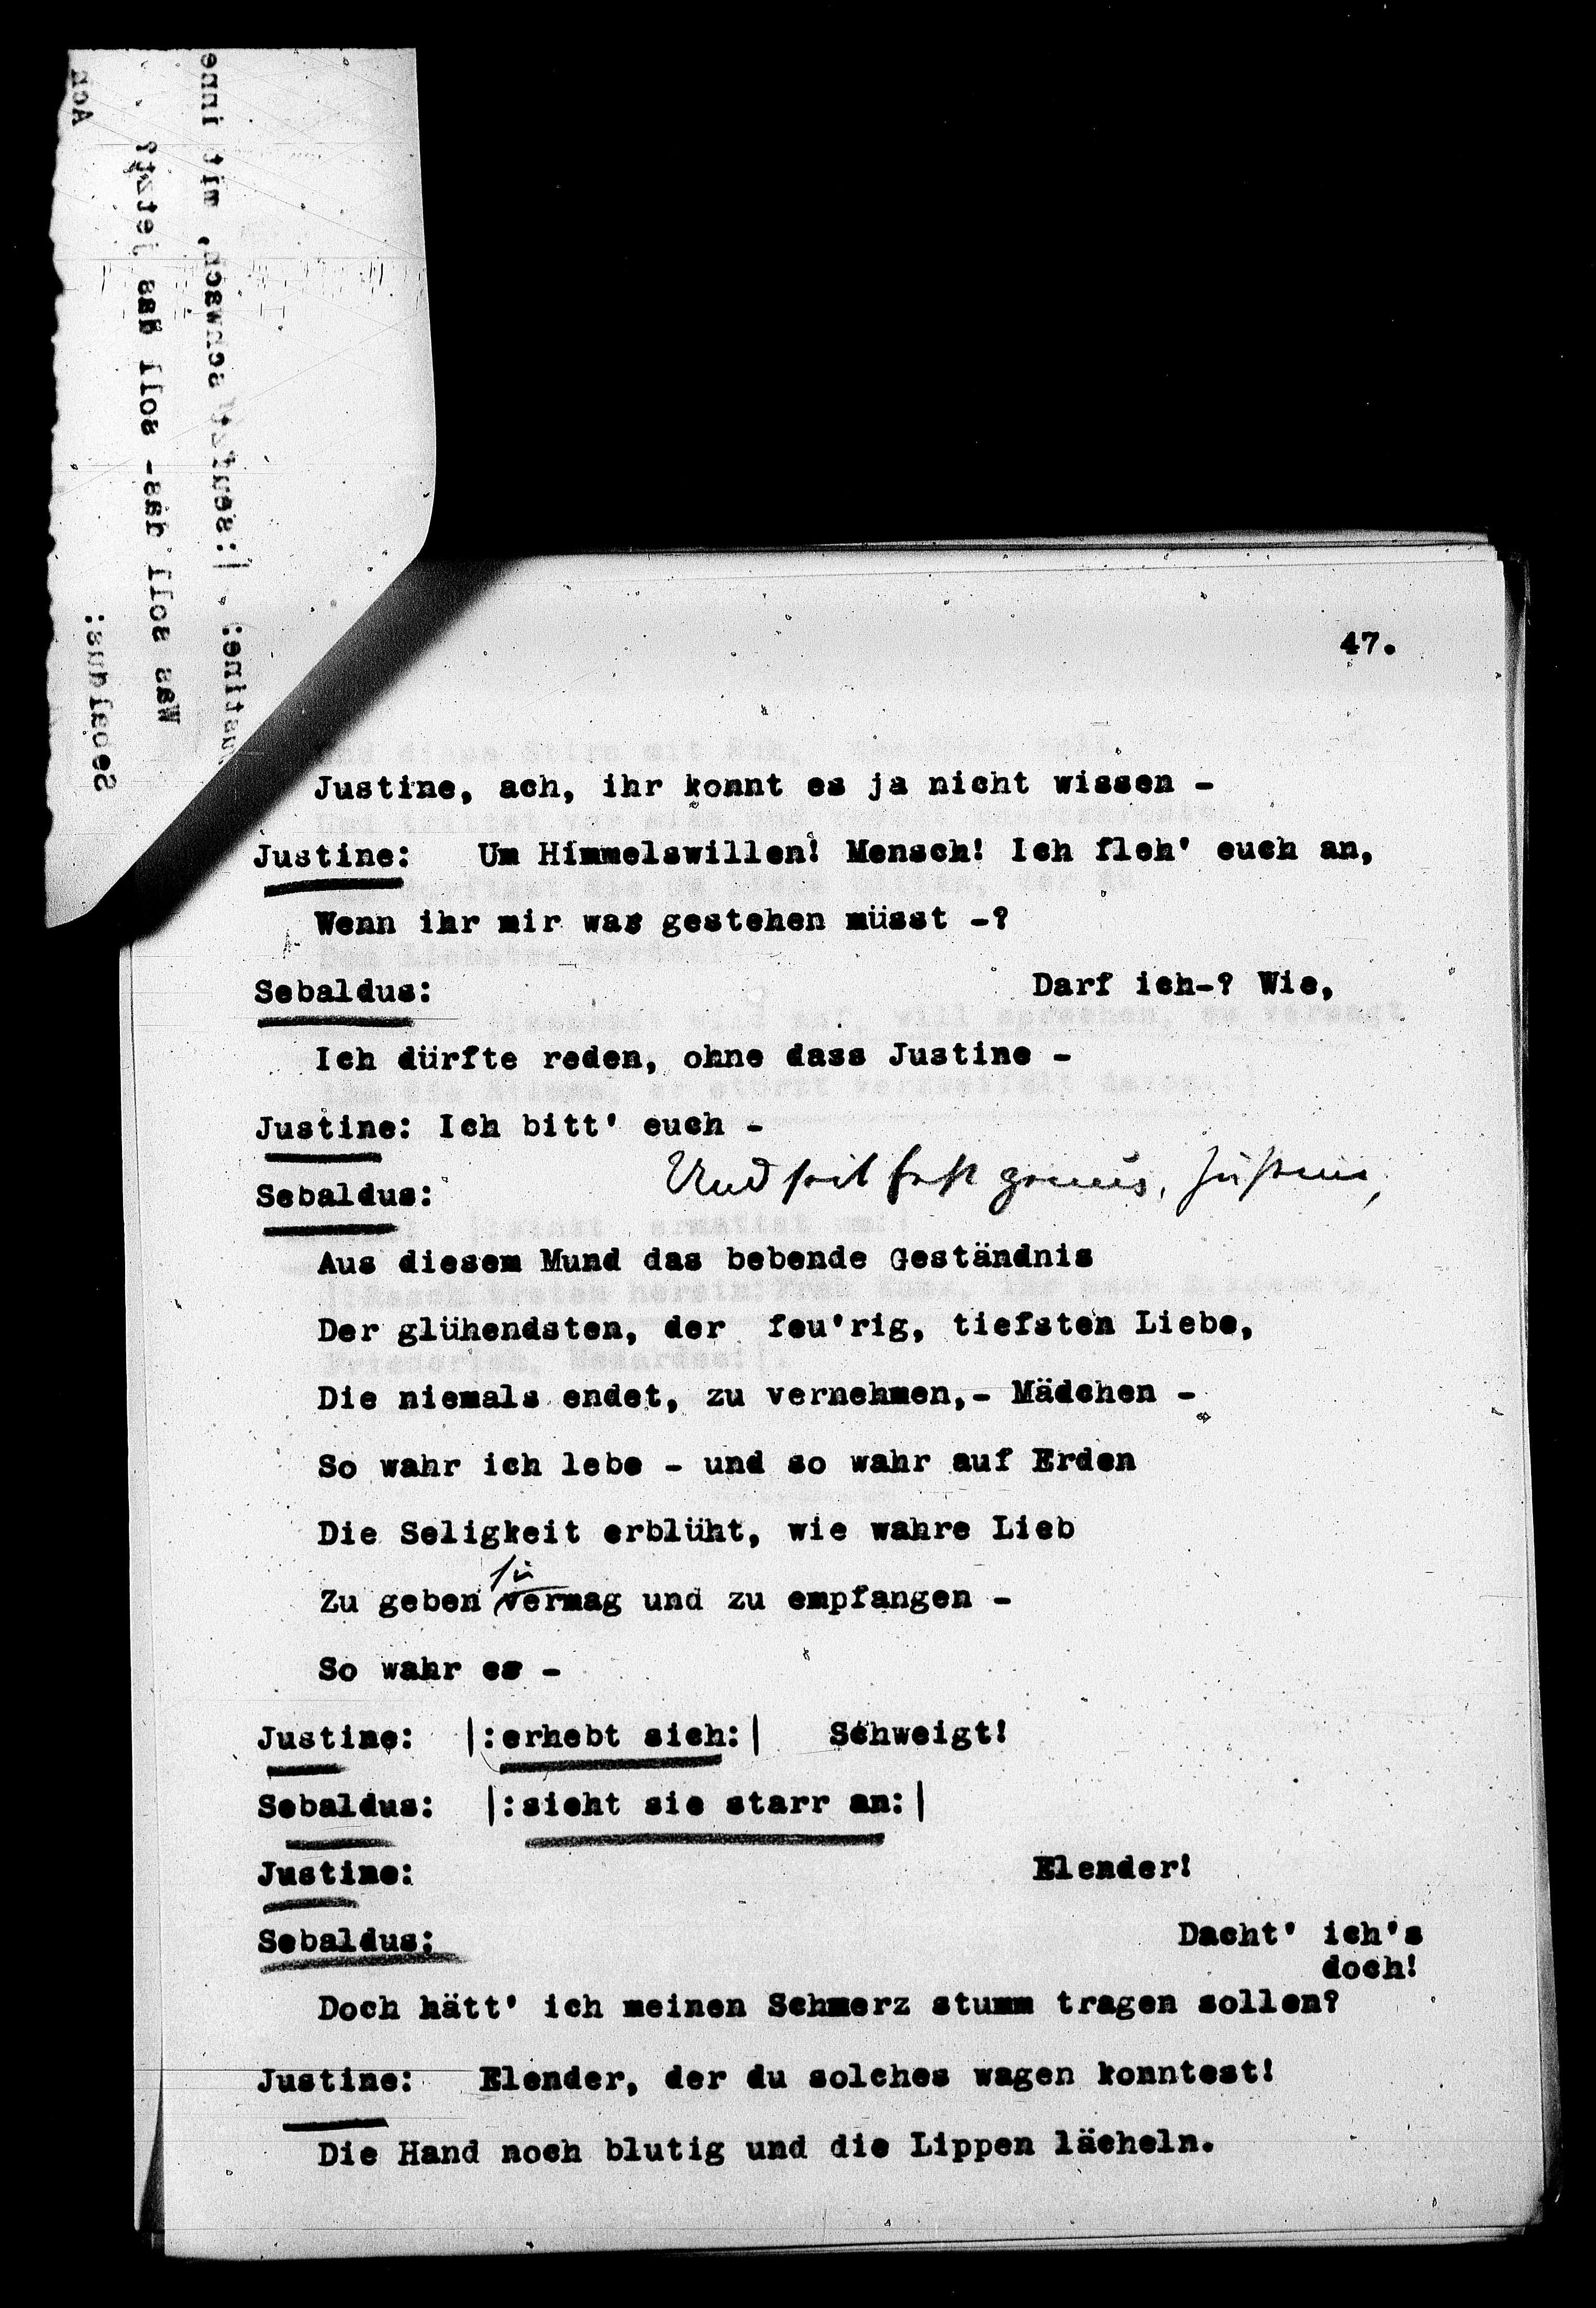 47.
Justine, ach, ihr konnt es ja nicht wissen -
Justine: Um Himmelswillen! Mensch! Ich fleh' euch an,
Wenn ihr mir was gestehen müsst -?
Sebaldus: Darf ich-? Wie,
Ich dürfte reden, ohne dass Justine -
Justine: Ich bitt' euch -
Sebaldus: Und seid Justine,
Aus diesem Mund das bebende Geständnis
Der glühendsten, der feu'rig, tiefsten Liebe,
Die niemals endet, zu vernehmen,- Mädchen -
So wahr ich lebe - und so wahr auf Erden
Die Seligkeit erblüht, wie wahre Lieb
Zu geben vermag und zu empfangen -
So wahr es -
Justine: |:erhebt sich:| Schweigt!
Sebaldus: |:sieht sie starr an:|
Justine: Elender!
Sebaldus: Dacht' ich's
doch!
Doch hätt' ich meinen Schmerz stumm tragen sollen?
Justine: Elender, der du solches wagen konntest!
Die Hand noch blutig und die Lippen lächeln.